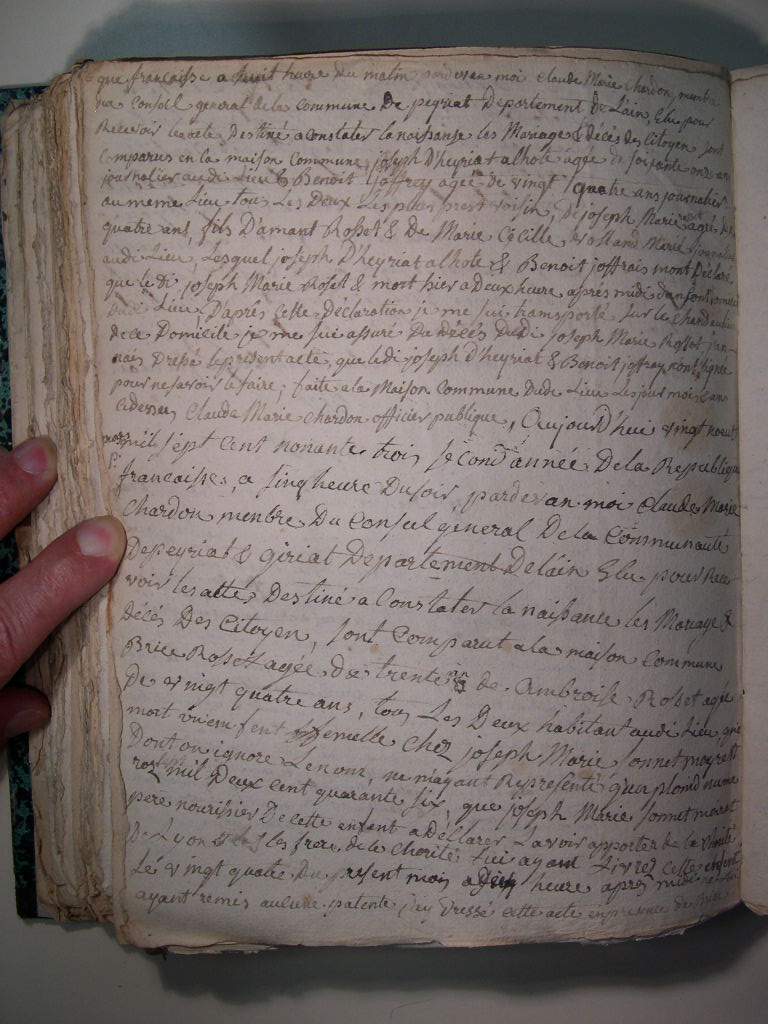 que francaisse a huit heure du matin pardevan moi Claude Marie Chardon, menbre
du Conseil general dela commune De peyriat Departement De Lain, Elu pour
Recevoir les acte Destiné a constater la naissanse les Mariage & décés des Citoyen sont
Comparus en la maison Commune, joseph D'heyriat alhote agée de soixante onze ans
journalier audi Lieu & Benoit joffrey agée de vingt quatre ans journalier
au meme Lieu tous Les Deux Les plus proet voisin, De joseph Marie agée de
quatre ans, fils D'amant Rosset & De Marie Cécille Marié journalier
audi Lieu, Lesquel joseph D'heyriat alhote & Benoit joffrais mont Déclaré
que le di joseph Marie Roset & mort hier a Deux heure aprés midi dan son
Dudi Lieu, D'aprés Cette Déclaration je me sui transporté sur le chand au lieu
de ce Domicile je me sui assuré Du décés Dudi joseph Marie Roset jan
nais Dressé le présent acte, que le di joseph D'heyriat & Benoit joffray nont signée
pour ne savoir le faire; faite a la Maison Commune Dudi Lieu Les jour mois & an
cidessus Claude Marie Chardon officier publique, Aujourd'hui vingt neuf
mars mil sept Cent nonante trois second année De la Republique
francaisse, a sinq heure Du soir, pardevan moi Claude Marie
Chardon menbre Du Conseil general De la Communauté
De peyriat & giriat Departement De lain Elu pour Rece
voir les actes Destiné a Constater la naissance les Mariage &
Décés Des Citoyen, sont Comparut a la maison Commune
Brice Rosset agée de trente de Ambroise Roset agée
De vingt quatre ans, tous Les Deux habitant audi Lieu, que
mort un enfent femelle chez joseph Marie Sonnet moyret
Dont on ignore Le nom, ne mayant Représenté qu'un plomd nume
roz mil Deux cent quarante six, que joseph Marie Sonnet moret
pere nourissier De cette enfent a Déclarer Lavoir apporter de la
De Lyon & les frere de la Charité Lui ayant Livrez Cette enfent
Le vingt quatre Du present mois a heure aprés midi
ayant remis aucune patente j'ay Dressé cette acte en presence de Brice